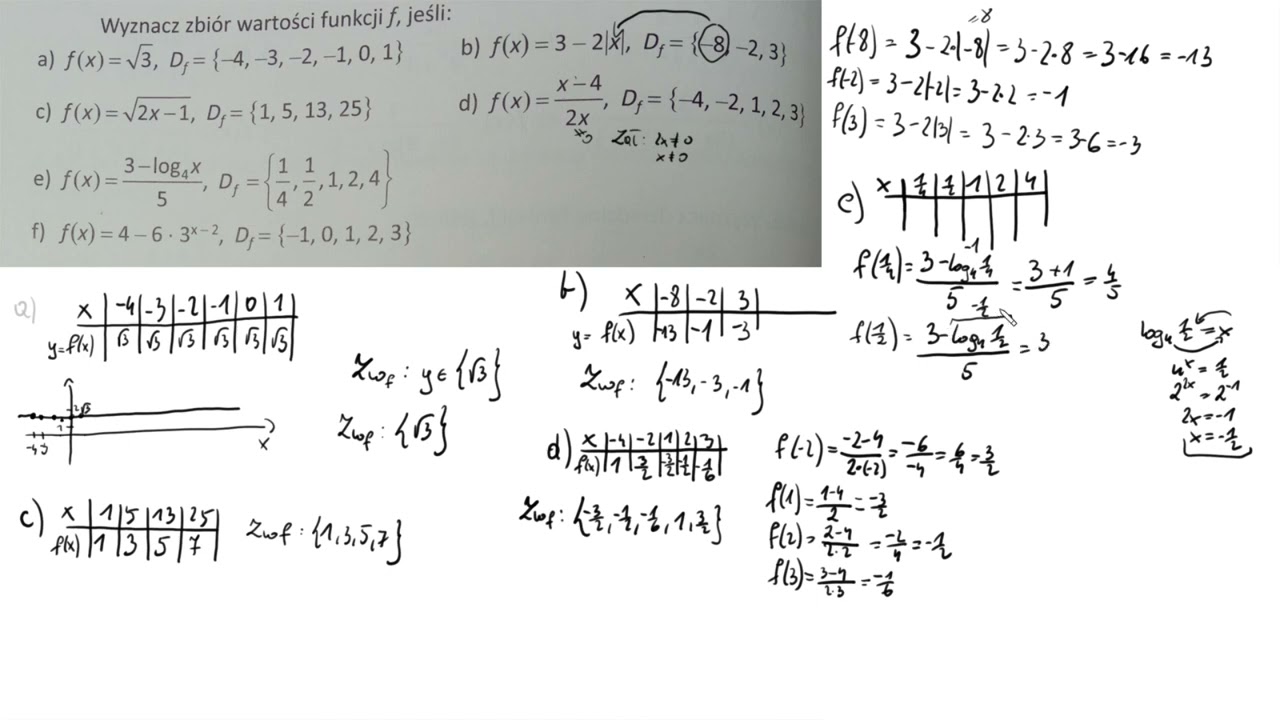 Wyznacz zbiór wartości funkcji f, jeśli:
a) f(x) = √3, D_f = {–4, –3, –2, –1, 0, 1}
b) f(x) = 3 – 2|x|, D_f = {–8, –2, 3}
c) f(x) = √(2x – 1), D_f = {1, 5, 13, 25}
d) f(x) = (x – 4)/(2x), D_f = {–4, –2, 1, 2, 3}
≠0 Zał: 2x ≠ 0
x ≠ 0
e) f(x) = (3 – log₄x)/5, D_f = {1/4, 1/2, 1, 2, 4}
f) f(x) = 4 – 6 · 3^(x–2), D_f = {–1, 0, 1, 2, 3}
f(-8) = 3 - 2·|-8| = 3 - 2·8 = 3 - 16 = -13
f(-2) = 3 - 2|-2| = 3 - 2·2 = -1
f(3) = 3 - 2|3| = 3 - 2·3 = 3-6 = -3
e) x | 1/4 | 1/2 | 1 | 2 | 4
-1
f(1/4) = (3 - log₄ 1/4)/5 = (3+1)/5 = 4/5
-1/2
f(1/2) = (3 - log₄ 1/2)/5 = 3
log₄ 1/2 = x
4^x = 1/2
2^2x = 2^-1
2x = -1
x = -1/2
a) x | -4 | -3 | -2 | -1 | 0 | 1
y=f(x) | √3 | √3 | √3 | √3 | √3 | √3
Zwf: y ∈ {√3}
Zwf: {√3}
2 √3
1
-4 -3
x
b) x | -8 | -2 | 3
y= f(x) | -13 | -1 | -3
Zwf: {-13, -3, -1}
c) x | 1 | 5 | 13 | 25
f(x) | 1 | 3 | 5 | 7
Zwf: {1, 3, 5, 7}
d) x | -4 | -2 | 1 | 2 | 3
f(x) | 1 | 3/2 | -3/2 | -1/2 | -1/6
Zwf: {-3/2, -1/2, -1/6, 1, 3/2}
f(-2) = (-2-4)/(2·(-2)) = -6/-4 = 6/4 = 3/2
f(1) = (1-4)/2 = -3/2
f(2) = (2-4)/(2·2) = -2/4 = -1/2
f(3) = (3-4)/(2·3) = -1/6